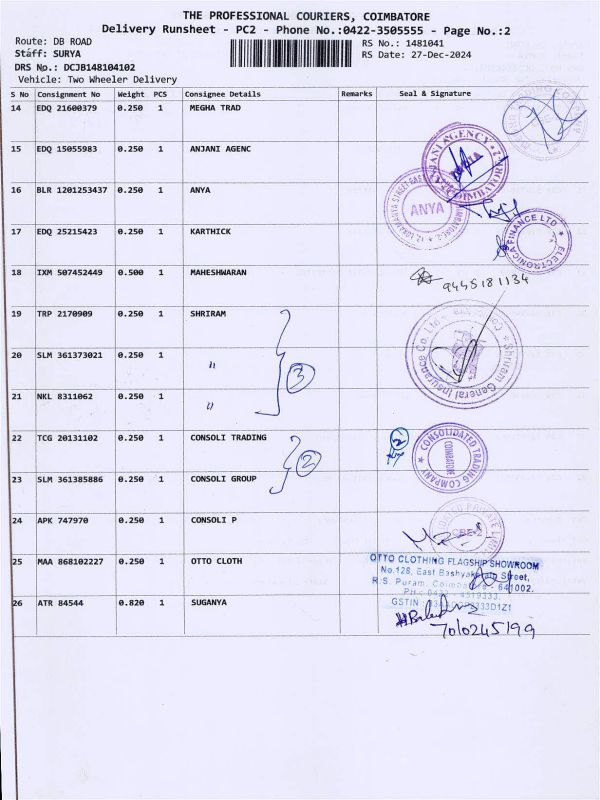 THE PROFESSIONAL COURIERS, COIMBATORE
Delivery Runsheet - PC2 - Phone No.:0422-3505555 - Page No.:2
Route: DB ROAD
RS No.: 1481041
Staff: SURYA
RS Date: 27-Dec-2024
DRS No.: DCJB148104102
Vehicle: Two Wheeler Delivery
S No Consignment No Weight PCS Consignee Details Remarks Seal & Signature
14 EDQ 21600379 0.250 1 MEGHA TRAD
15 EDQ 15055983 0.250 1 ANJANI AGENC
ANJANI AGENCY
COIMBATORE
16 BLR 1201253437 0.250 1 ANYA
ANYA
17 EDQ 25215423 0.250 1 KARTHICK
ELECTRONICA FINANCE LTD
18 IXM 507452449 0.500 1 MAHESHWARAN
9445181134
19 TRP 2170909 0.250 1 SHRIRAM
20 SLM 361373021 0.250 1 "
3
Shriram General Insurance Co. Ltd
21 NKL 8311062 0.250 1 "
22 TCG 20131102 0.250 1 CONSOLI TRADING
2
2
CONSOLIDATED TRADING COMPANY
COIMBATORE
23 SLM 361385886 0.250 1 CONSOLI GROUP
24 APK 747970 0.250 1 CONSOLI P
CBE-2
25 MAA 868102227 0.250 1 OTTO CLOTH
OTTO CLOTHING FLAGSHIP SHOWROOM
No.128, East Bashyakaralu Street,
R.S. Puram, Coimbatore - 641002.
4519333
GSTIN
26 ATR 84544 0.820 1 SUGANYA
7010245199